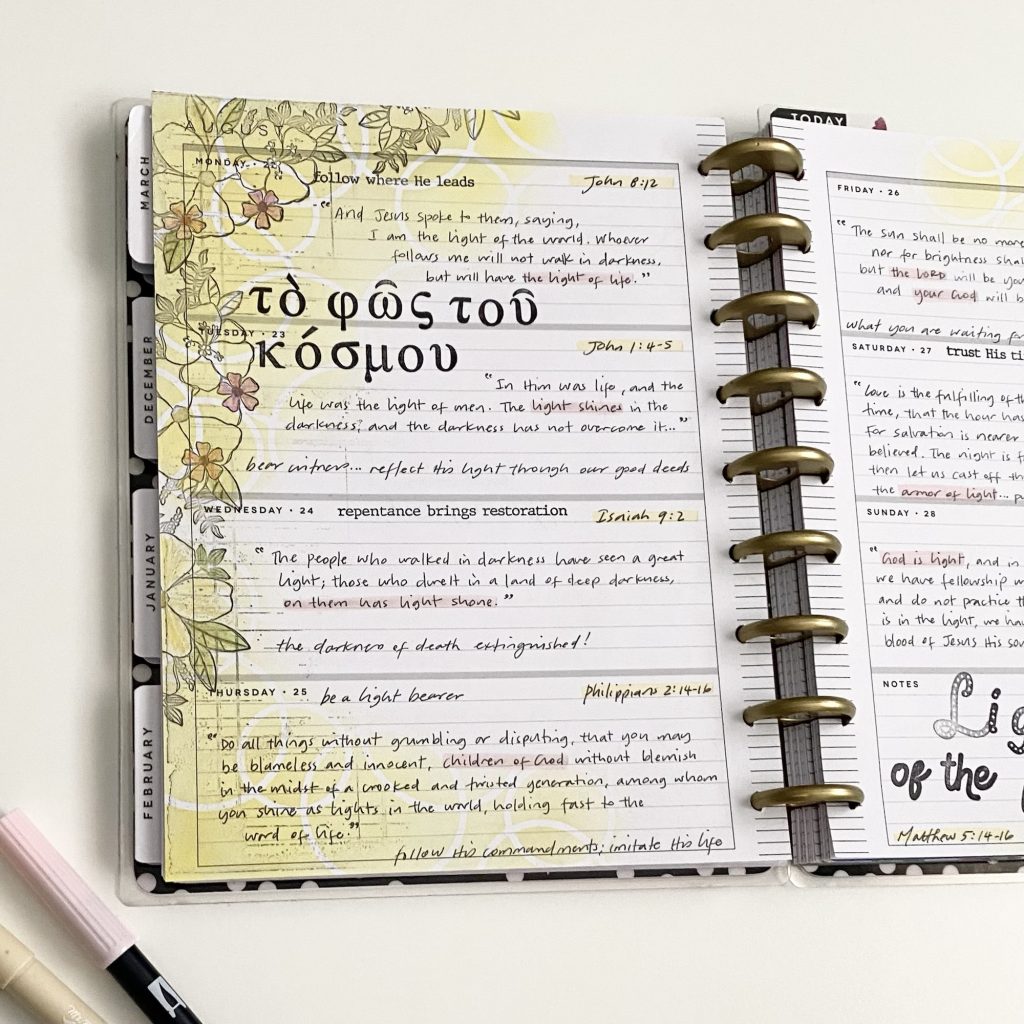 AUGUST
MONDAY • 22
follow where He leads
John 8:12
"And Jesus spoke to them, saying,
I am the light of the world. Whoever
follows me will not walk in darkness,
but will have the light of life."
τὸ φῶς τοῦ
TUESDAY • 23
κόσμου
John 1:4-5
"In Him was life, and the
life was the light of men. The light shines in the
darkness, and the darkness has not overcome it..."
bear witness... reflect His light through our good deeds
WEDNESDAY • 24
repentance brings restoration
Isaiah 9:2
"The people who walked in darkness have seen a great
light; those who dwelt in a land of deep darkness,
on them has light shone."
the darkness of death extinguished!
THURSDAY • 25
be a light bearer
Philippians 2:14-16
"Do all things without grumbling or disputing, that you may
be blameless and innocent, children of God without blemish
in the midst of a crooked and twisted generation, among whom
you shine as lights in the world, holding fast to the
word of life."
follow His commandments; imitate His life
MARCH
DECEMBER
JANUARY
FEBRUARY
TODAY
FRIDAY • 26
"The sun shall be no more
nor for brightness shal
but the LORD will be you
and your God will b
what you are waiting fo
SATURDAY • 27
trust His ti
"Love is the fulfilling of th
time, that the hour has
for salvation is nearer
believed. The night is f
then let us cast off th
the armor of light... p
SUNDAY • 28
"God is light, and in
we have fellowship w
and do not practice th
is in the light, we hav
blood of Jesus His so
NOTES
Lig
of the
Matthew 5:14-16